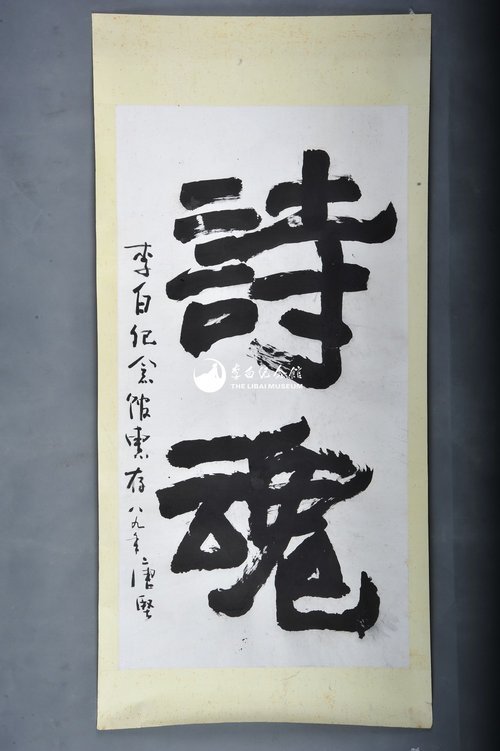 詩魂
李白纪念馆惠存 八九年 唐坚
李白纪念馆
THE LIBAI MUSEUM